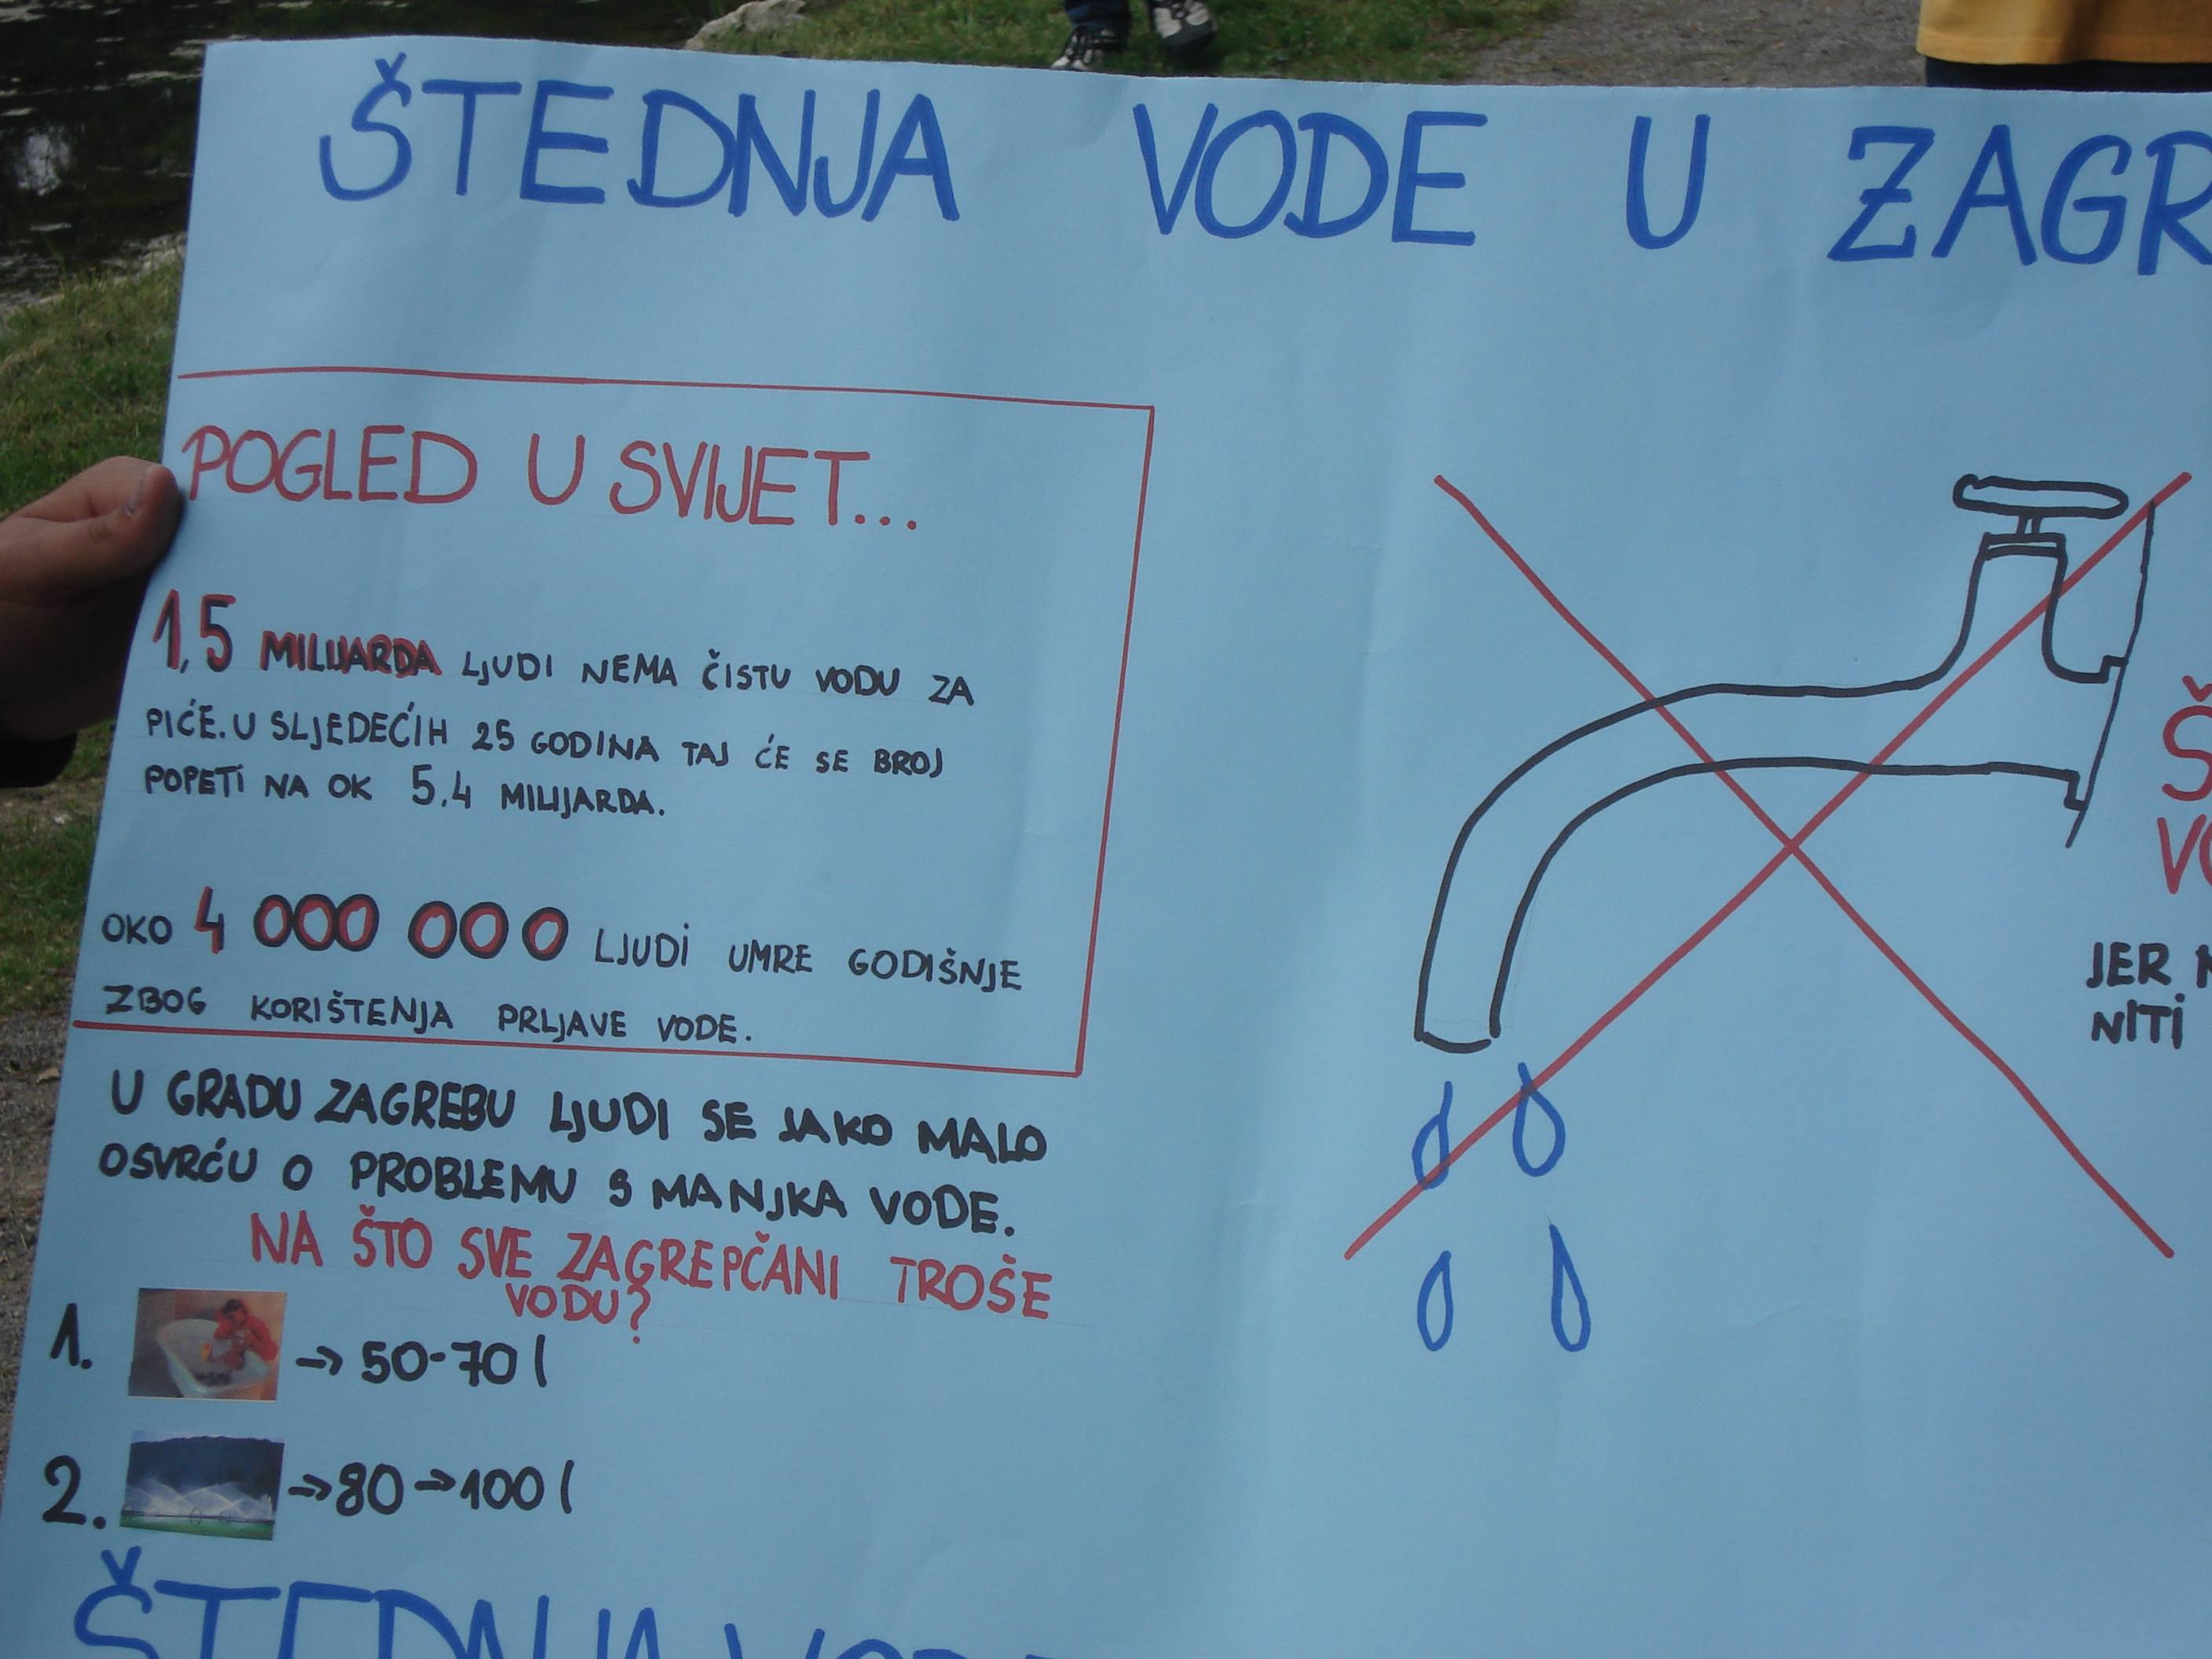 ŠTEDNJA VODE U ZAGR
POGLED U SVIJET...
1,5 MILIJARDA LJUDI NEMA ČISTU VODU ZA
PIĆE. U SLJEDEĆIH 25 GODINA TAJ ĆE SE BROJ
POPETI NA OK 5,4 MILIJARDA.
OKO 4 000 000 LJUDI UMRE GODIŠNJE
ZBOG KORIŠTENJA PRLJAVE VODE.
U GRADU ZAGREBU LJUDI SE JAKO MALO
OSVRĆU O PROBLEMU S MANJKA VODE.
NA ŠTO SVE ZAGREPČANI TROŠE
VODU?
1. → 50-70 l
2. → 80 → 100 l
ŠTEDNJA VODE
Š
VO
JER N
NITI